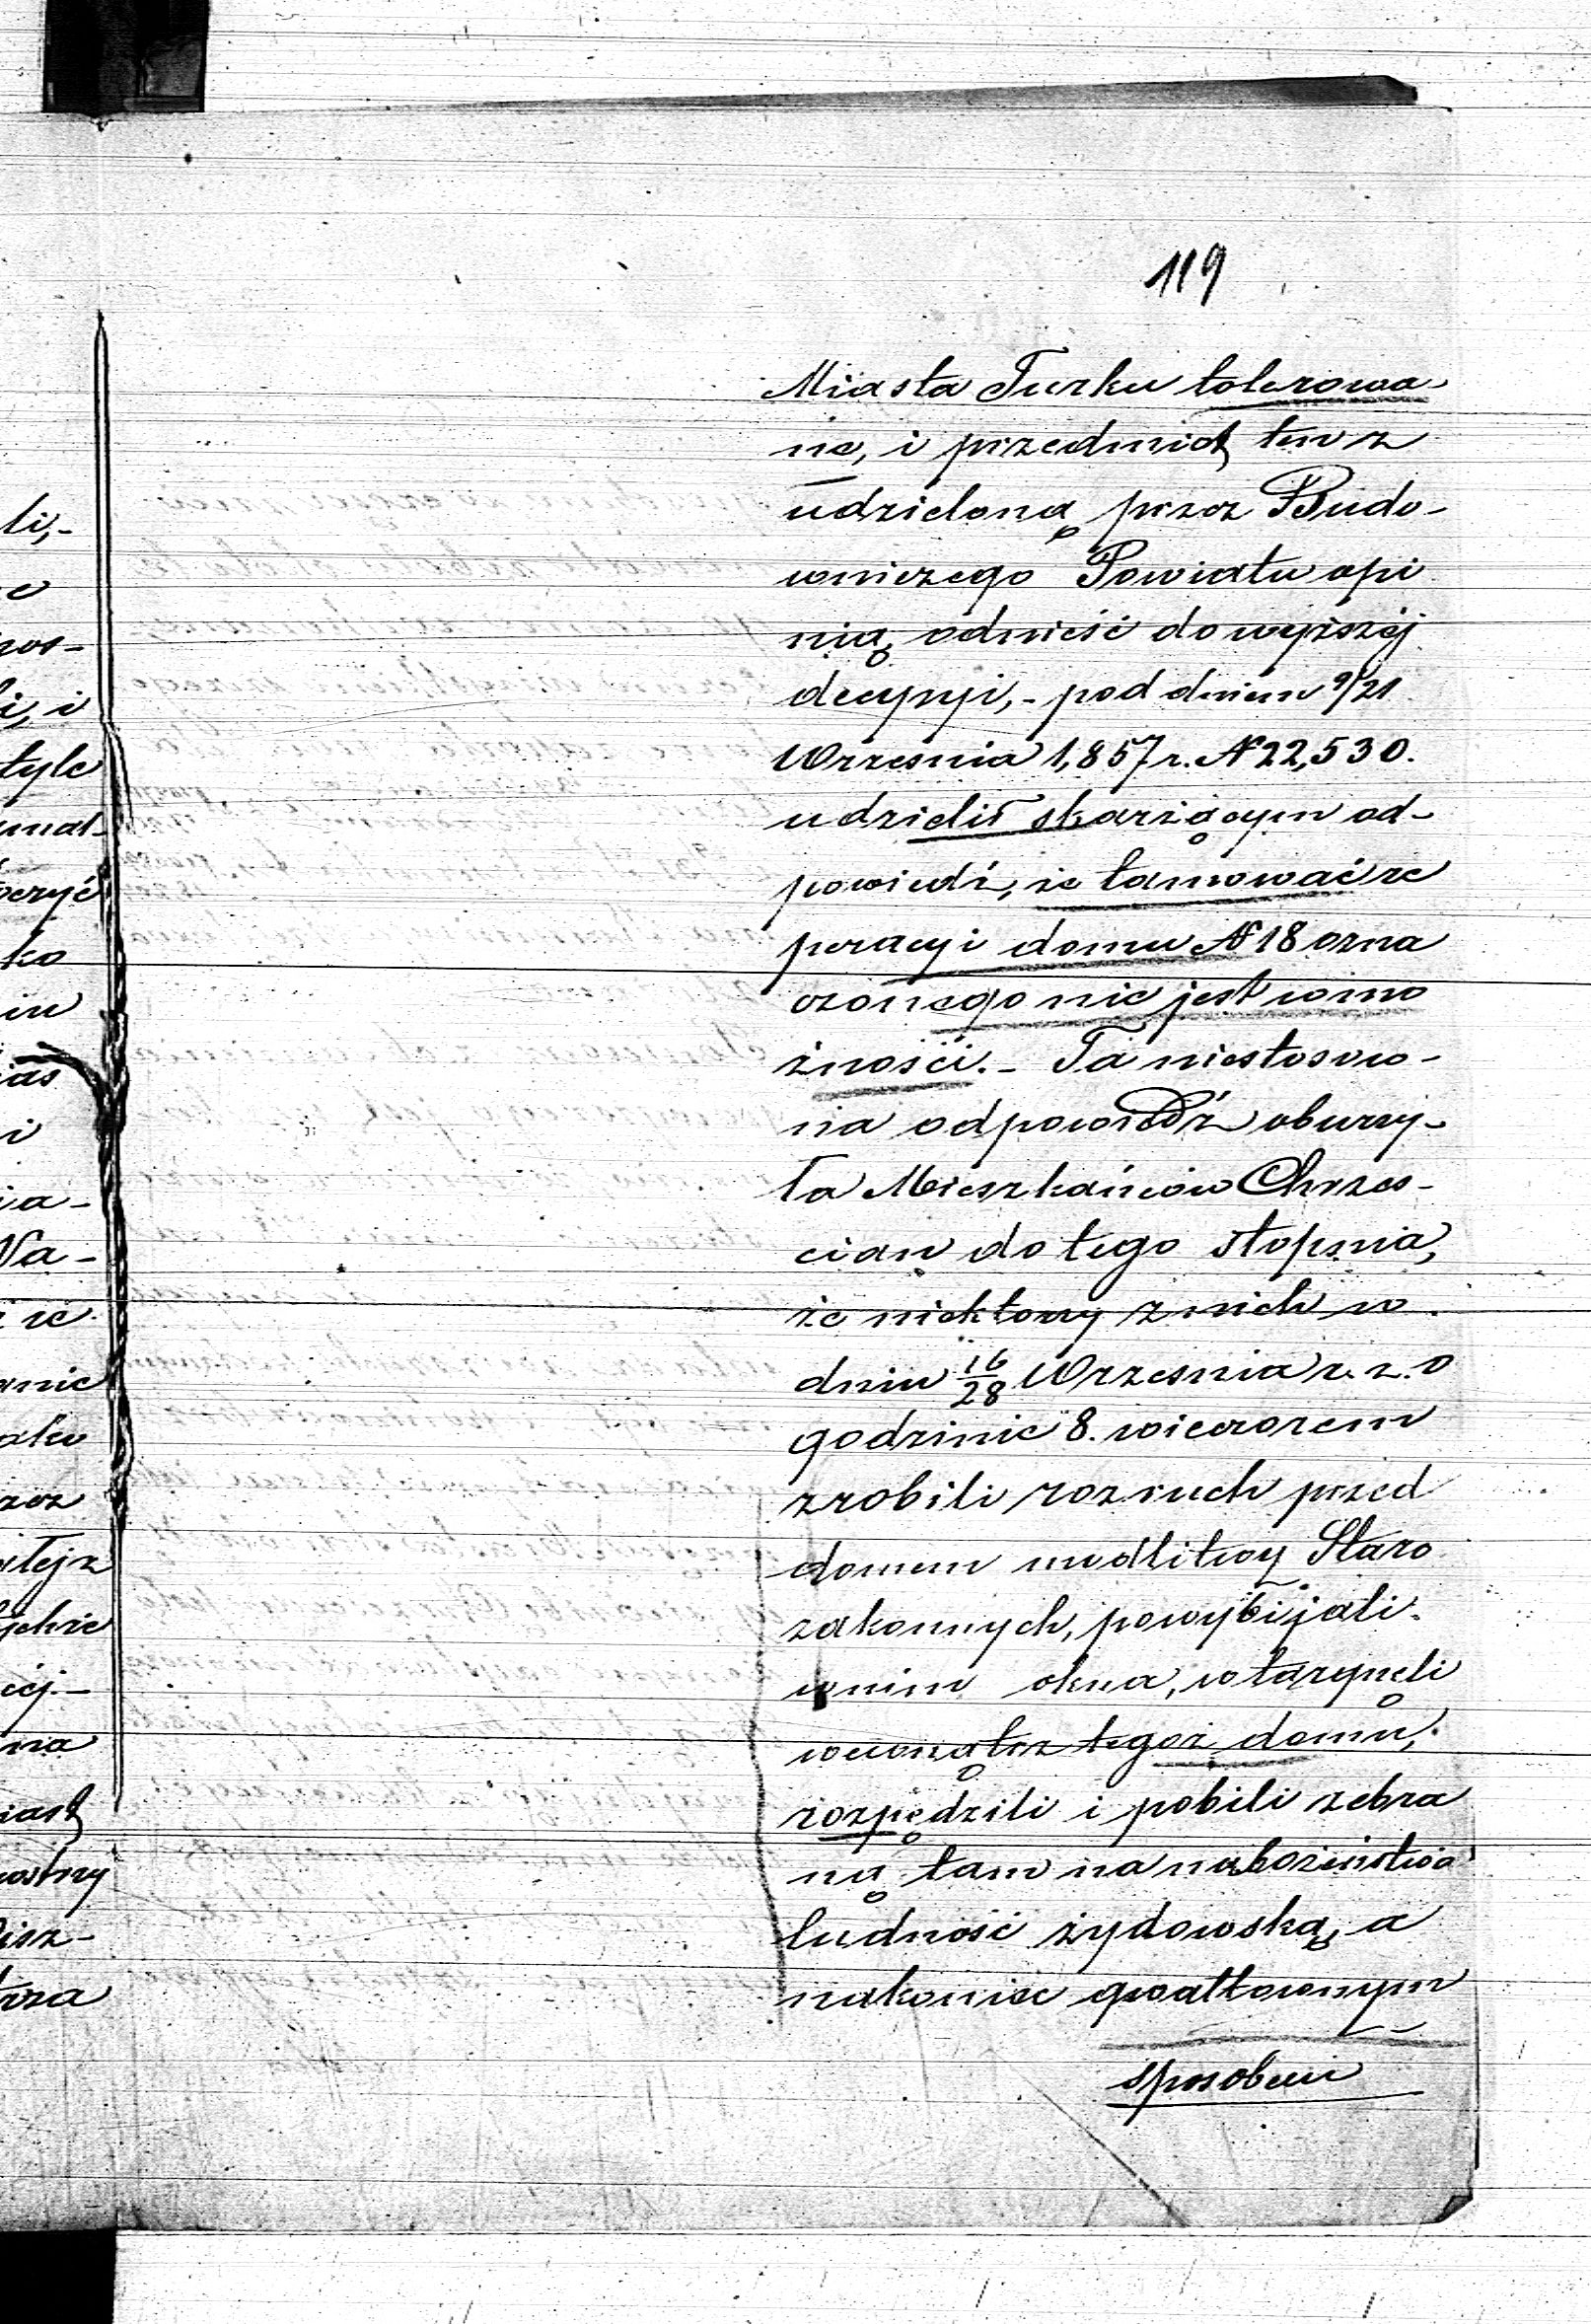 119
Miasta Turku tolerowa-
ne, i przedmiot ten z
udzieloną przez Budo-
wniczego Powiatu opi
nią, odnieść do wyższej
decyzyi,- pod dniem 9/21
Września 1,857 r. N 22,530.
udzielił skarżącym od-
powiedź, że tamować re
peracyi domu N 18 ozna
czonego nie jest w mo
żności.- Ta niestosow-
na odpowiedź oburzy-
ła Mieszkańców Chrzes-
cian do tego stopnia,
że niektórzy z nich w
dniu 16/28 Września r. z. o
godzinie 8. wieczorem
zrobili rozruch przed
domem modlitwy Staro
zakonnych, powybijali
w nim okna, wtargnęli
wewnątrz tegoż domu,
rozpędzili i pobili zebra
ną tam na nabożeństwo
ludność żydowską, a
nakoniec gwałtownym
sposobem
li,-
li, i
tyle
ko
i
Na-